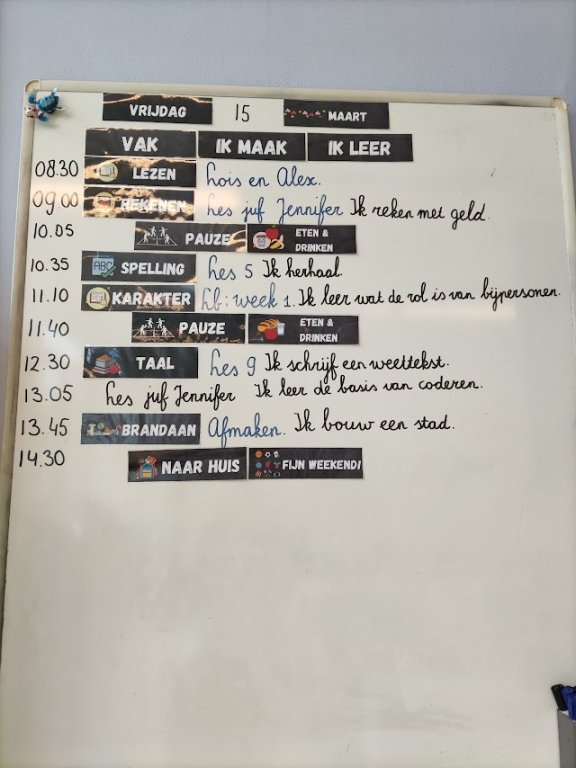 VRIJDAG 15 MAART
VAK IK MAAK IK LEER
08.30 LEZEN Lois en Alex.
09.00 REKENEN Les juf Jennifer Ik reken met geld.
10.05 PAUZE ETEN & DRINKEN
10.35 ABC SPELLING Les 5 Ik herhaal.
11.10 KARAKTER Lb: week 1. Ik leer wat de rol is van bijpersonen.
11.40 PAUZE ETEN & DRINKEN
12.30 TAAL Les 9 Ik schrijf een weettekst.
13.05 Les juf Jennifer Ik leer de basis van coderen.
13.45 BRANDAAN Afmaken. Ik bouw een stad.
14.30 NAAR HUIS FIJN WEEKEND!